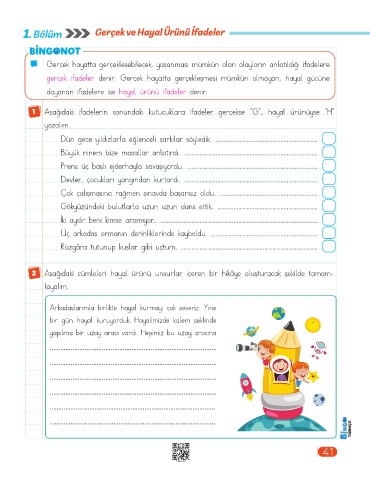 1. Bölüm
Gerçek ve Hayal Ürünü İfadeler
BİNGONOT
Gerçek hayatta gerçekleşebilecek, yaşanması mümkün olan olayların anlatıldığı ifadelere
gerçek ifadeler denir. Gerçek hayatta gerçekleşmesi mümkün olmayan, hayal gücüne
dayanan ifadelere ise hayal ürünü ifadeler denir.
1 Aşağıdaki ifadelerin sonundaki kutucuklara ifadeler gerçekse "G", hayal ürünüyse "H"
yazalım.
Dün gece yıldızlarla eğlenceli şarkılar söyledik.
Büyük ninem bize masallar anlatırdı.
Prens üç başlı ejderhayla savaşıyordu.
Devler, çocukları yangından kurtardı.
Çok çalışmasına rağmen sınavda başarısız oldu.
Gökyüzündeki bulutlarla uzun uzun dans ettik.
İki aydır beni kimse aramıyor.
Üç arkadaş ormanın derinliklerinde kayboldu.
Rüzgâra tutunup kuşlar gibi uçtum.
2 Aşağıdaki cümleleri hayal ürünü unsurlar içeren bir hikâye oluşturacak şekilde tamam-
layalım.
Arkadaşlarımla birlikte hayal kurmayı çok severiz. Yine
bir gün hayal kuruyorduk. Hayalimizde kalem şeklinde
yapılmış bir uzay aracı vardı. Hepimiz bu uzay aracına
BİNGO
TÜRKÇE
41